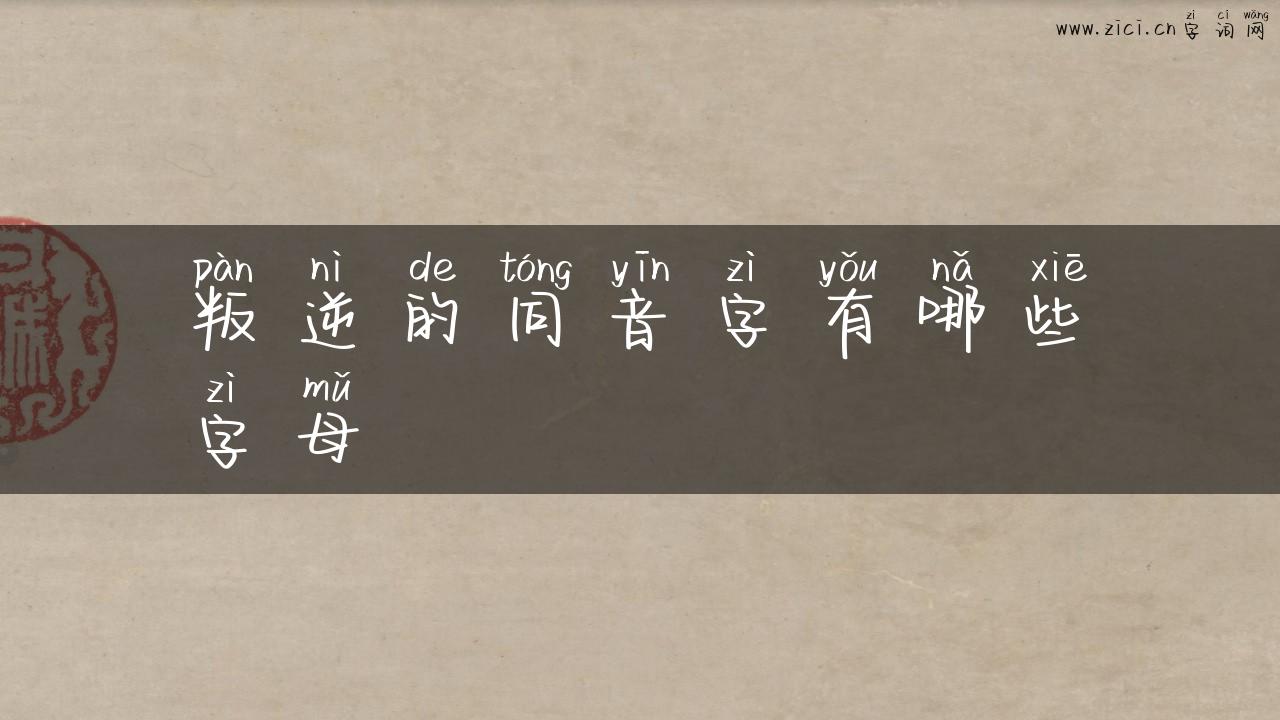 zì cí wǎng
www.zici.cn字词网
pàn nì de tóng yīn zì yǒu nǎ xiē
叛逆的同音字有哪些
zì mǔ
字母